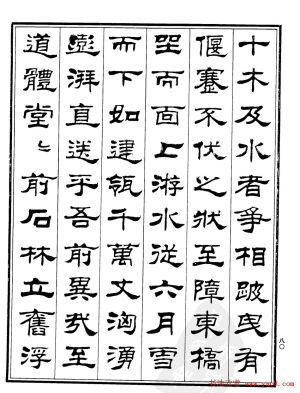 十木及水者爭相跛曳有
偃蹇不伏之狀至障東橋
坐而面上游水從六月雪
而下如建瓴千萬丈洶湧
澎湃直送乎吾前異哉至
道體堂〻前石林立舊浮
八〇